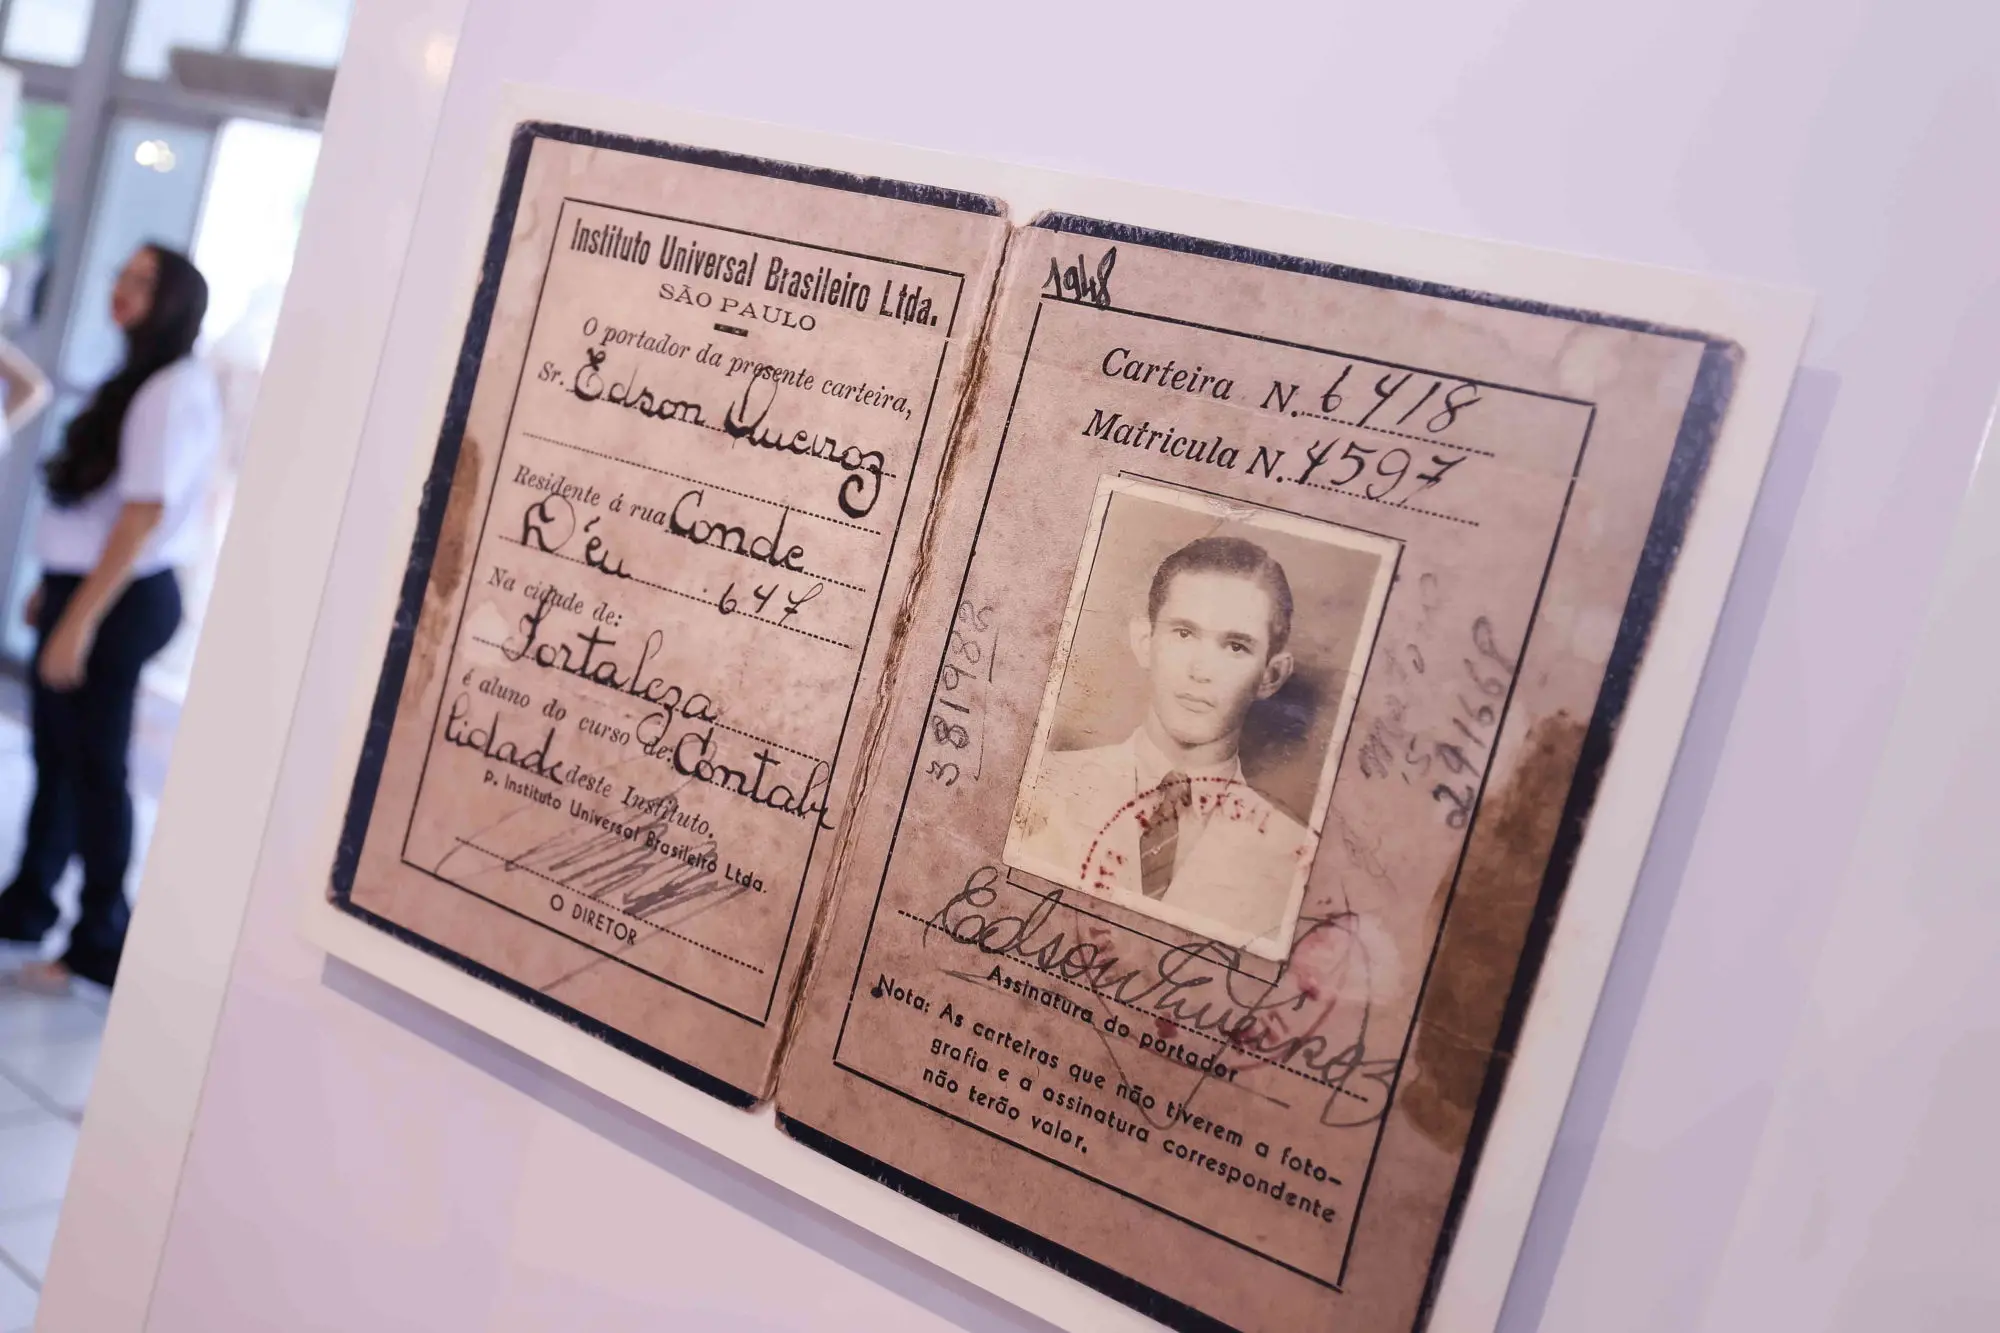 Instituto Universal Brasileiro Ltda.
SÃO PAULO
O portador da presente carteira,
Sr. Edson Queiroz
Residente á rua Conde
D'eu 647
Na cidade de:
Fortaleza
é aluno do curso de: Contabi
lidade deste Instituto.
P. Instituto Universal Brasileiro Ltda.
O DIRETOR
1948
Carteira N. 6418
Matricula N. 4597
3819822
UNIVERSAL
Edson Queiroz
Assinatura do portador
Nota: As carteiras que não tiverem a foto-
grafia e a assinatura correspondente
não terão valor.